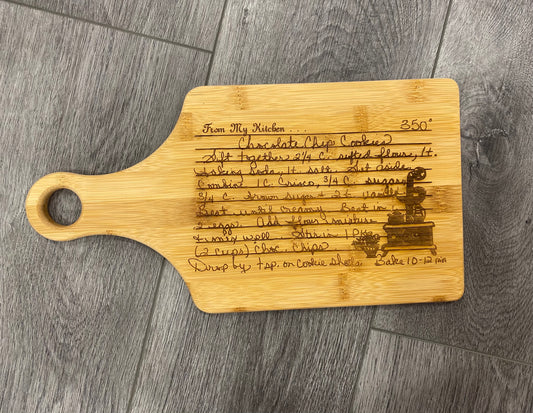 From My Kitchen . . . 350°
Chocolate Chip Cookies
Sift together 2 1/4 C. sifted flour, 1 t.
baking soda, 1 t. salt. Set aside.
Combine 1 C. Crisco, 3/4 C. sugar,
3/4 C. brown sugar
Beat until creamy. Beat in
2 eggs. Add flour mixture
& mix well. Stir in 1 pkg
(2 cups) Choc. Chips
Drop by tsp. on cookie sheet. Bake 10-12 min